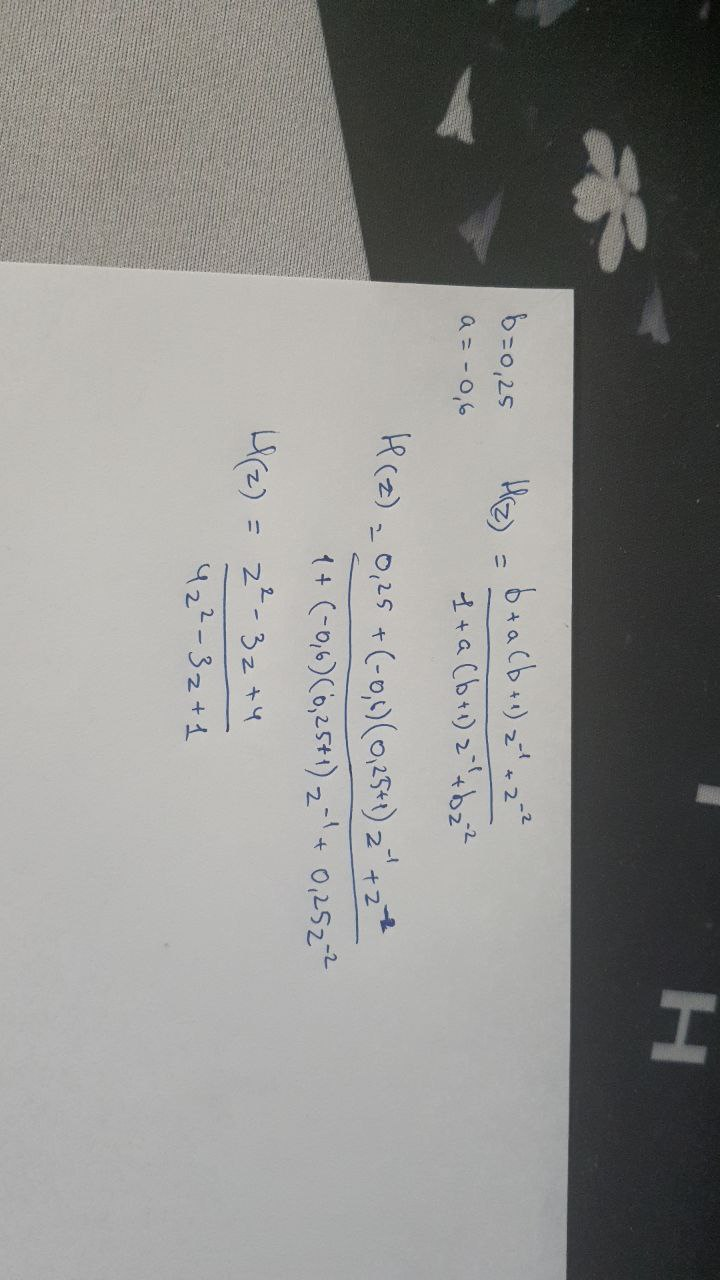 b=0,25
a=-0,6
H(z) = b+a(b+1)z⁻¹+z⁻²
1+a(b+1)z⁻¹+bz⁻²
H(z) = 0,25+(-0,6)(0,25+1)z⁻¹+z⁻²
1+(-0,6)(0,25+1)z⁻¹+0,25z⁻²
H(z) = z²-3z+4
4z²-3z+1
H